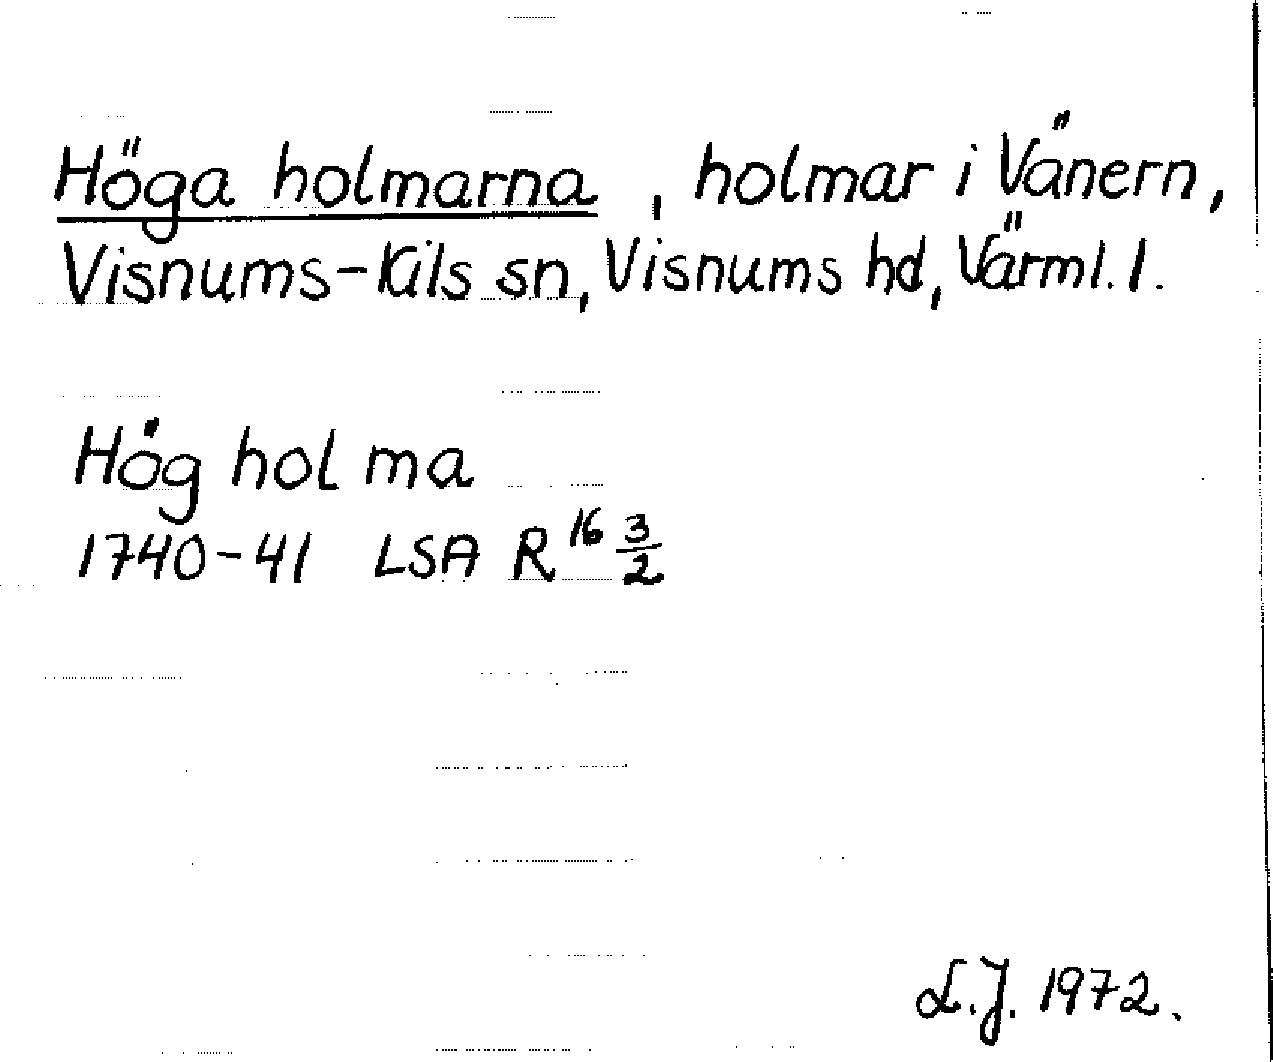 Höga holmarna, holmar i Vänern,
Visnums-Kils sn, Visnums hd, Värml. l.
Hög hol ma
1740-41 LSA R 16 3/2
L.J. 1972.